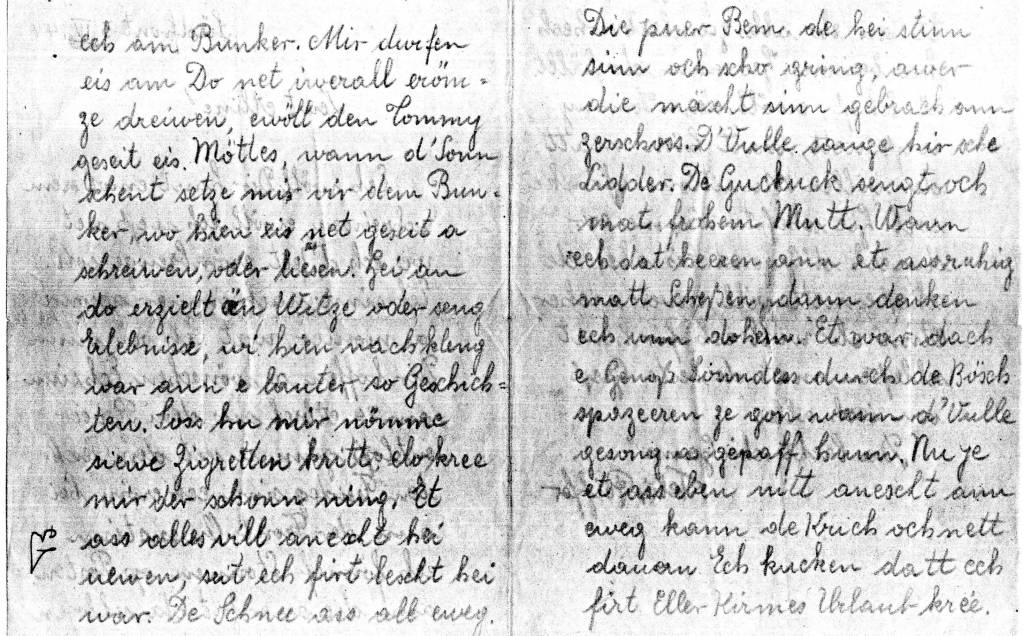 ech am Bunker. Mir durfen
eis am Do net iwerall eröm=
ze dreiwen, ewöll den Tommy
geseit eis. Möttes, wann d'Sonn
scheint setze mir vir dem Bun=
ker, wo hien eis net geseit a
schreiwen, oder liesen. Hei an
do erzielt än Witze oder seng
Erlebnisse, wi hien nach kleng
war ann e lauter so Geschich=
ten. Soss hu mir nömme
siewe Zigretten kritt, elo kree
mir der schonn ning. Et
ass alles vill anescht hei
uewen, seit ech firt lescht hei
war. De Schnee ass all eweg.
Die puer Bem de hei stinn
sinn och scho gring, awer
die mäscht sinn gebrach ann
zerschoss. D'Vulle sange hir sche
Lidder. De Guckuck sengt och
mat frohem Mutt. Wann
ech dat heeren ann et ass ruhig
matt Scheßen, dann denken
ech unn dohem. Et war dach
e Genoß Sonndess durch de Bösch
spazeeren ze gon wann d'Vulle
gesong a gepaff hunn. Nu je
et ass eben nitt anescht ann
eweg kann de Krich och nett
dauan. Ech kucken datt ech
firt Eller Kirmes Urlaub kree.